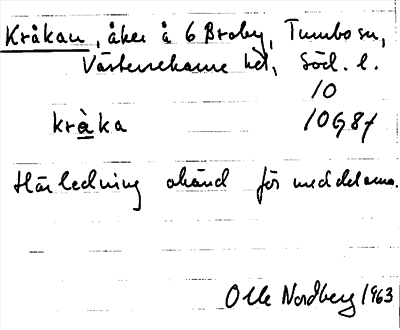 Kråkan, åker å 6 Broby, Tumbo sn,
Västerrekarne hd, Söd. l.
10
kråka 10G8f
Härledning okänd för meddelarna.
Olle Nordberg 1963